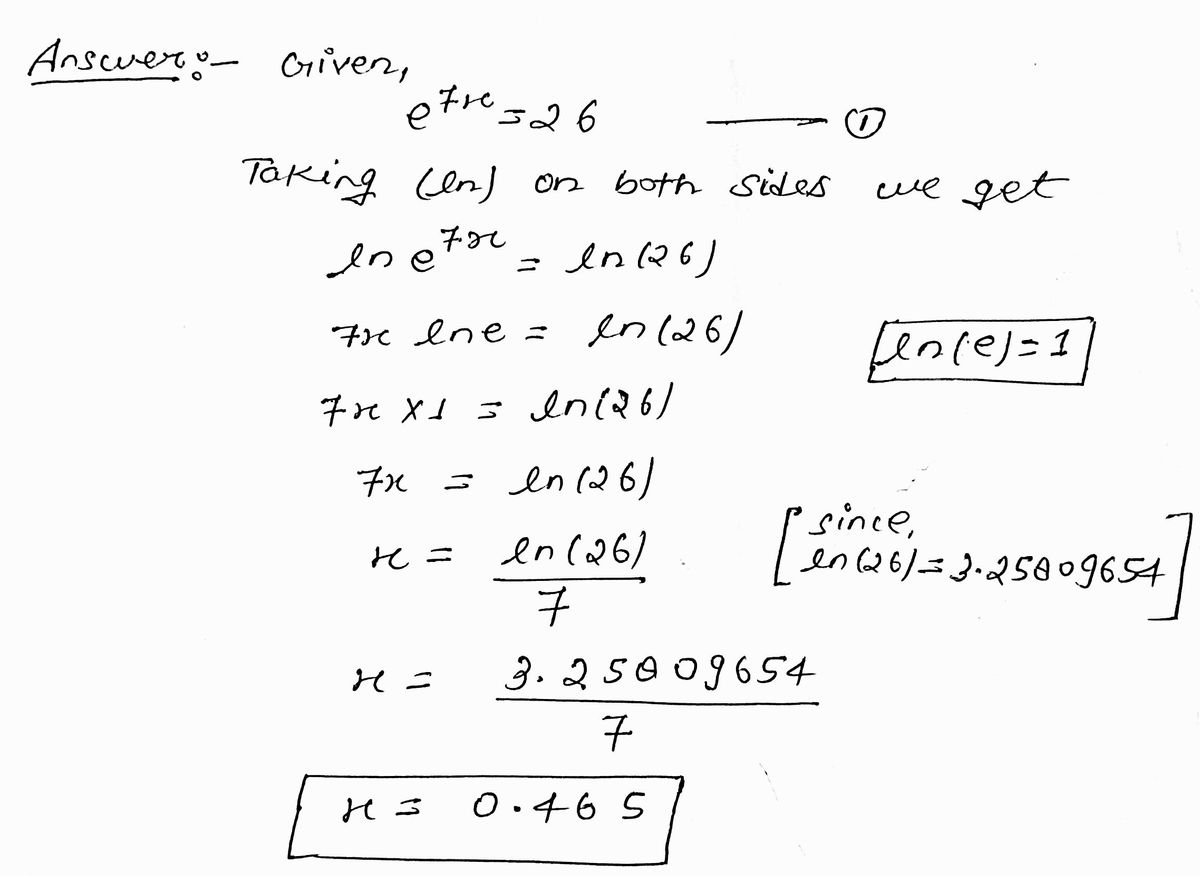 Answer:- Given,
e^7x = 26 —— ①
Taking (ln) on both sides we get
ln e^7x = ln(26)
7x ln e = ln(26)
ln(e) = 1
7x × 1 = ln(26)
7x = ln(26)
x = ln(26) / 7
[since,
ln(26) = 3.25809654]
x = 3.25809654 / 7
x = 0.465